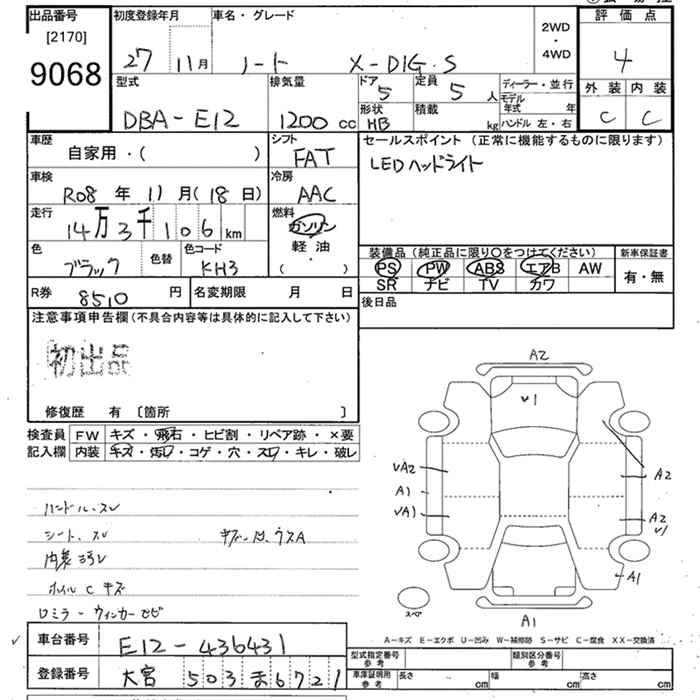 出品番号
[2170]
9068
初度登録年月
27 11月
車名・グレード
ノート X-DIG.S
2WD
・
4WD
評価点
4
外装 内装
C C
型式
DBA-E12
排気量
1200 cc
ドア
5
定員
5 人
形状
HB
積載
kg
ディーラー・並行
モデル年式 年
ハンドル 左・右
車歴
自家用・( )
シフト
FAT
セールスポイント(正常に機能するものに限ります)
LEDヘッドライト
車検
R08年 11月(18日)
冷房
AAC
走行
14万3千106km
燃料
ガソリン
軽油
・
( )
色
ブラック
色替
色コード
KH3
装備品(純正品に限り○をつけてください)
PS PW ABS エアB AW
SR ナビ TV カワ
新車保証書
有・無
R券 8510円
名変期限 月 日
後日品
注意事項申告欄(不具合内容等は具体的に記入して下さい)
初出品
修復歴 有 〔箇所 〕
検査員
記入欄
FW キズ・飛石・ヒビ割・リペア跡・×要
内装 キズ・汚レ・コゲ・穴・スレ・キレ・破レ
ハンドル.スレ
シート.スレ
内装 汚レ
ホイル C キズ
ロミラー ウィンカー
A2
V1
VA2
A1
VA1
A2
A2
V1
A1
A1
スペア
A-キズ E-エクボ U-凹み W-補修跡 S-サビ C-腐食 XX-交換済
車台番号 E12-436431
登録番号 大宮 503 ま 6721
型式指定番号
参考
類別区分番号
参考
車庫証明用
参考
長さ cm
幅 cm
高さ cm